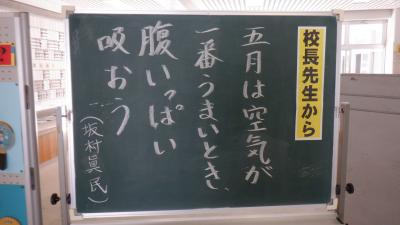 校長先生から
五月は空気が
一番うまいとき、
腹いっぱい
吸おう
(坂村眞民)